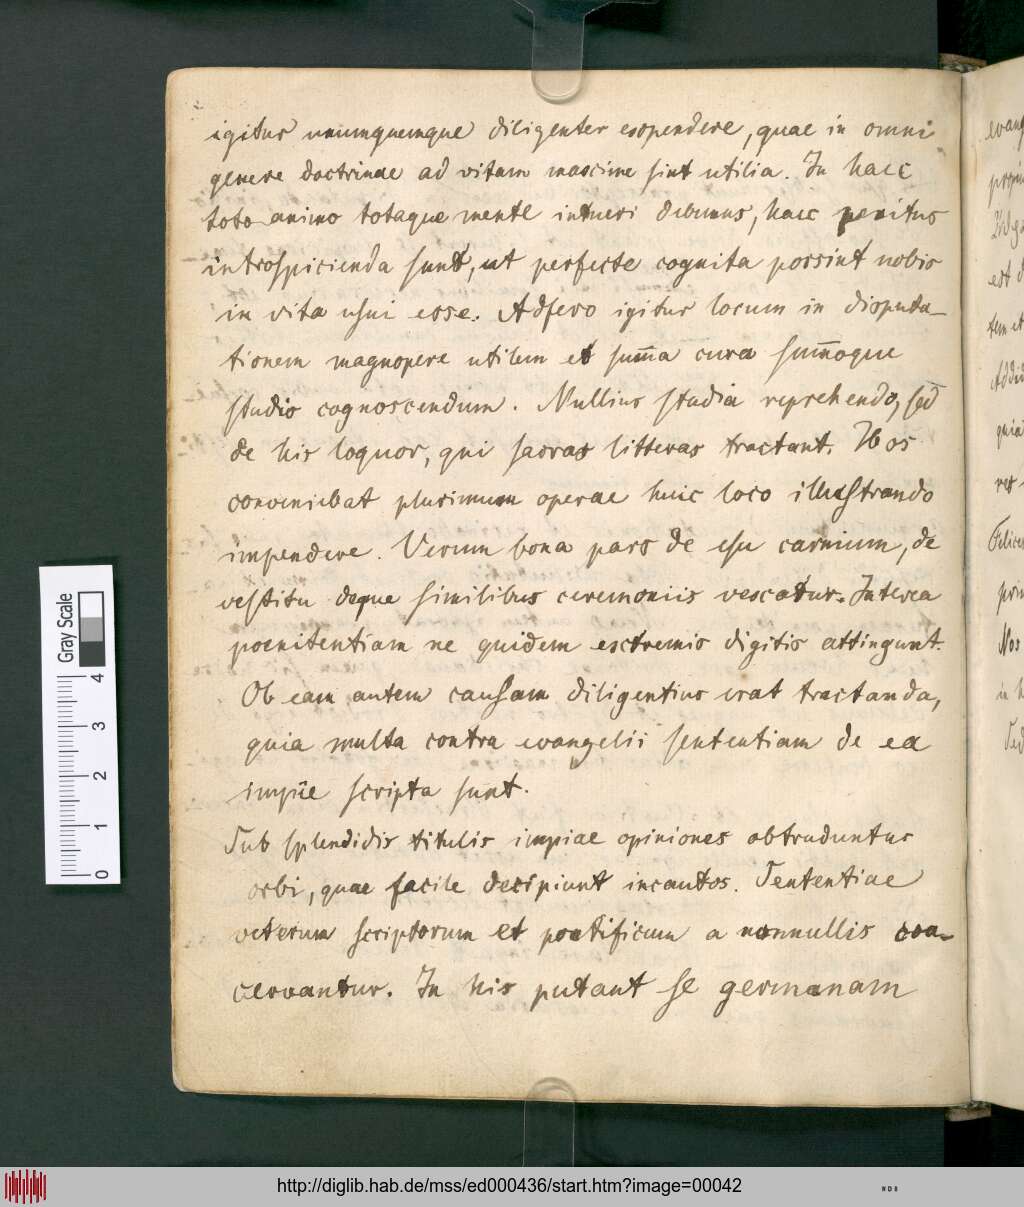 igitur unumquemque diligenter expendere, quae in omni
genere doctrinae ad vitam maxime sint utilia. In haec
toto animo totaque mente intueri debemus, haec penitus
introspicienda sunt, ut perfecte cognita possint nobis
in vita usui esse. Adsero igitur locum in disputa-
tionem magnopere utilem et sum̄a cura sum̄oque
studio cognoscendum. Nullius studia reprehendo, sed
de his loquor, qui sacras litteras tractant. Hos
conveniebat plurimum operae huic loco illustrando
impendere. Verum bona pars de esu carnium, de
vestitu deque similibus ceremoniis vescatur. Interea
poenitentiam ne quidem extremis digitis attingunt.
Ob eam autem causam diligentius erat tractanda,
quia multa contra evangelii sententiam de ea
impie scripta sunt.
Sub splendidis titulis impiae opiniones obtruduntur
orbi, quae facile decipiunt incautos. Sententiae
veterum scriptorum et pontificum a nonnullis coa-
cervantur. In his putant se germanam
evang
est
tem et
Addid
quia
res
Felices
prim
Nos
in h
Sed
Gray Scale
4
3
2
1
0
http://diglib.hab.de/mss/ed000436/start.htm?image=00042